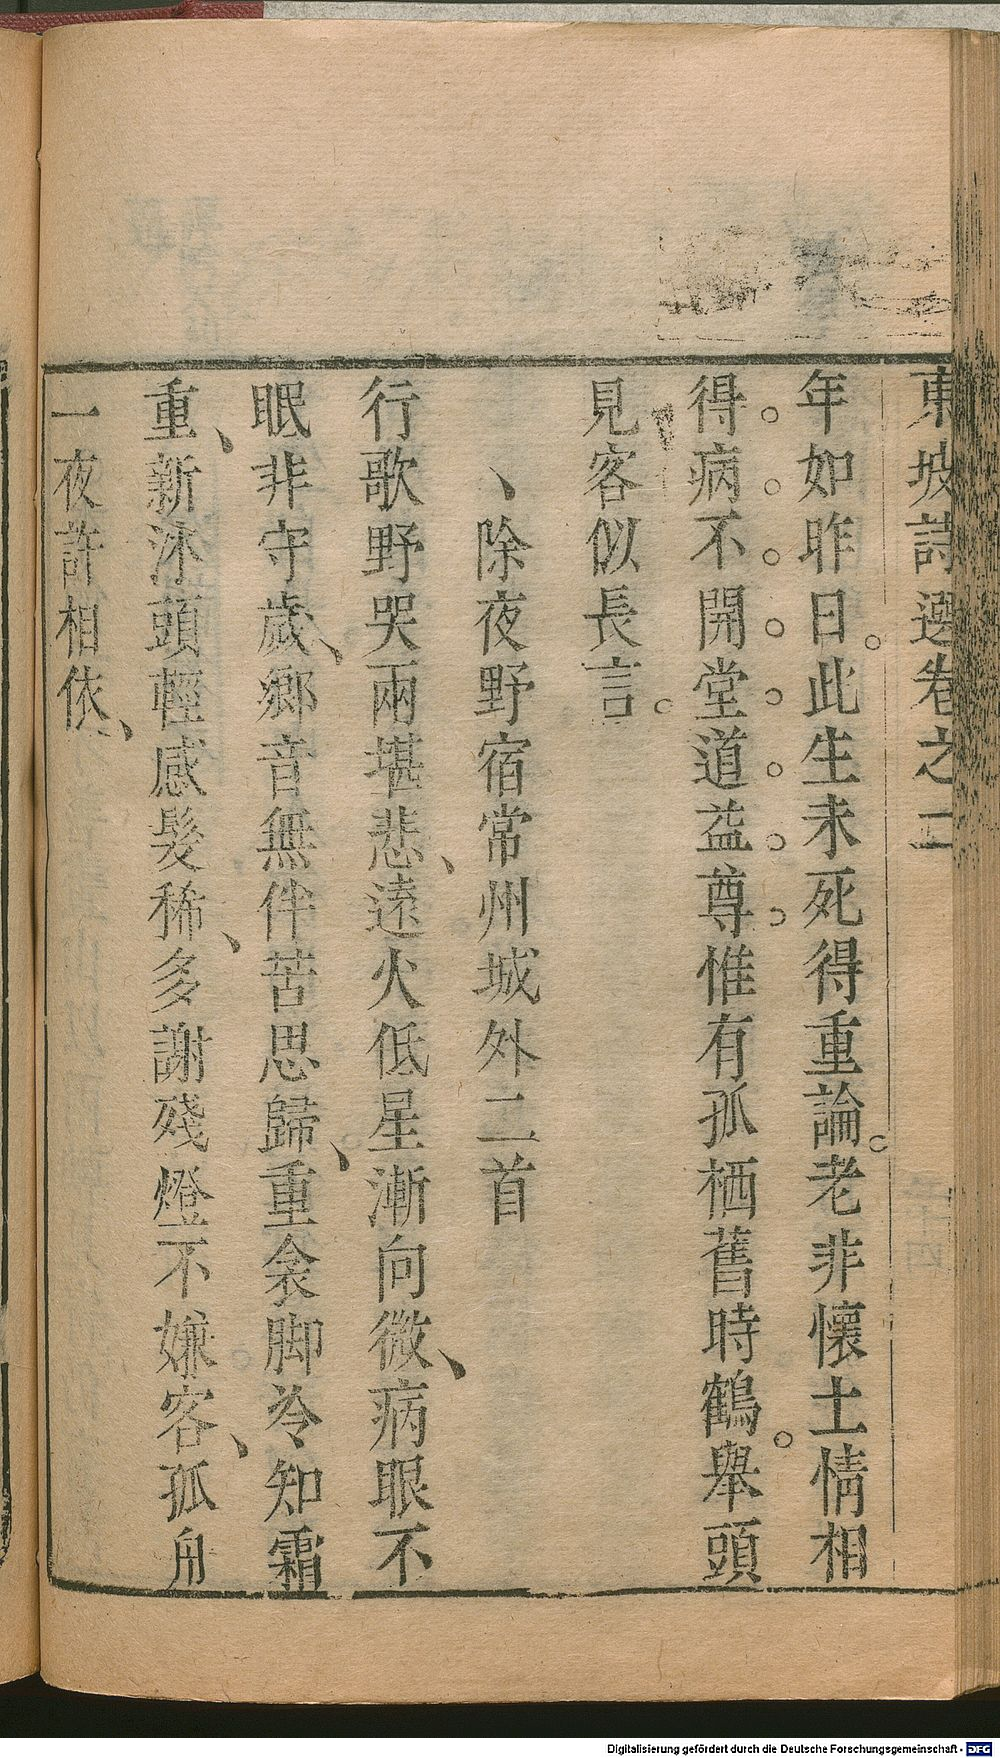 東坡詩選卷之二
年如昨日。此生未死得重論。老非懷土情相
得。病。不。開。堂。道。益。尊。惟有孤栖舊時鶴。舉頭
見客似長言。
、除夜野宿常州城外二首
行歌野哭兩堪悲、遠火低星漸向微、病眼不
眠非守歲、鄉音無伴苦思歸、重衾脚冷知霜
重、新沐頭輕感髮稀、多謝殘燈不嫌客、孤舟
一夜許相依、
Digitalisierung gefördert durch die Deutsche Forschungsgemeinschaft - DFG